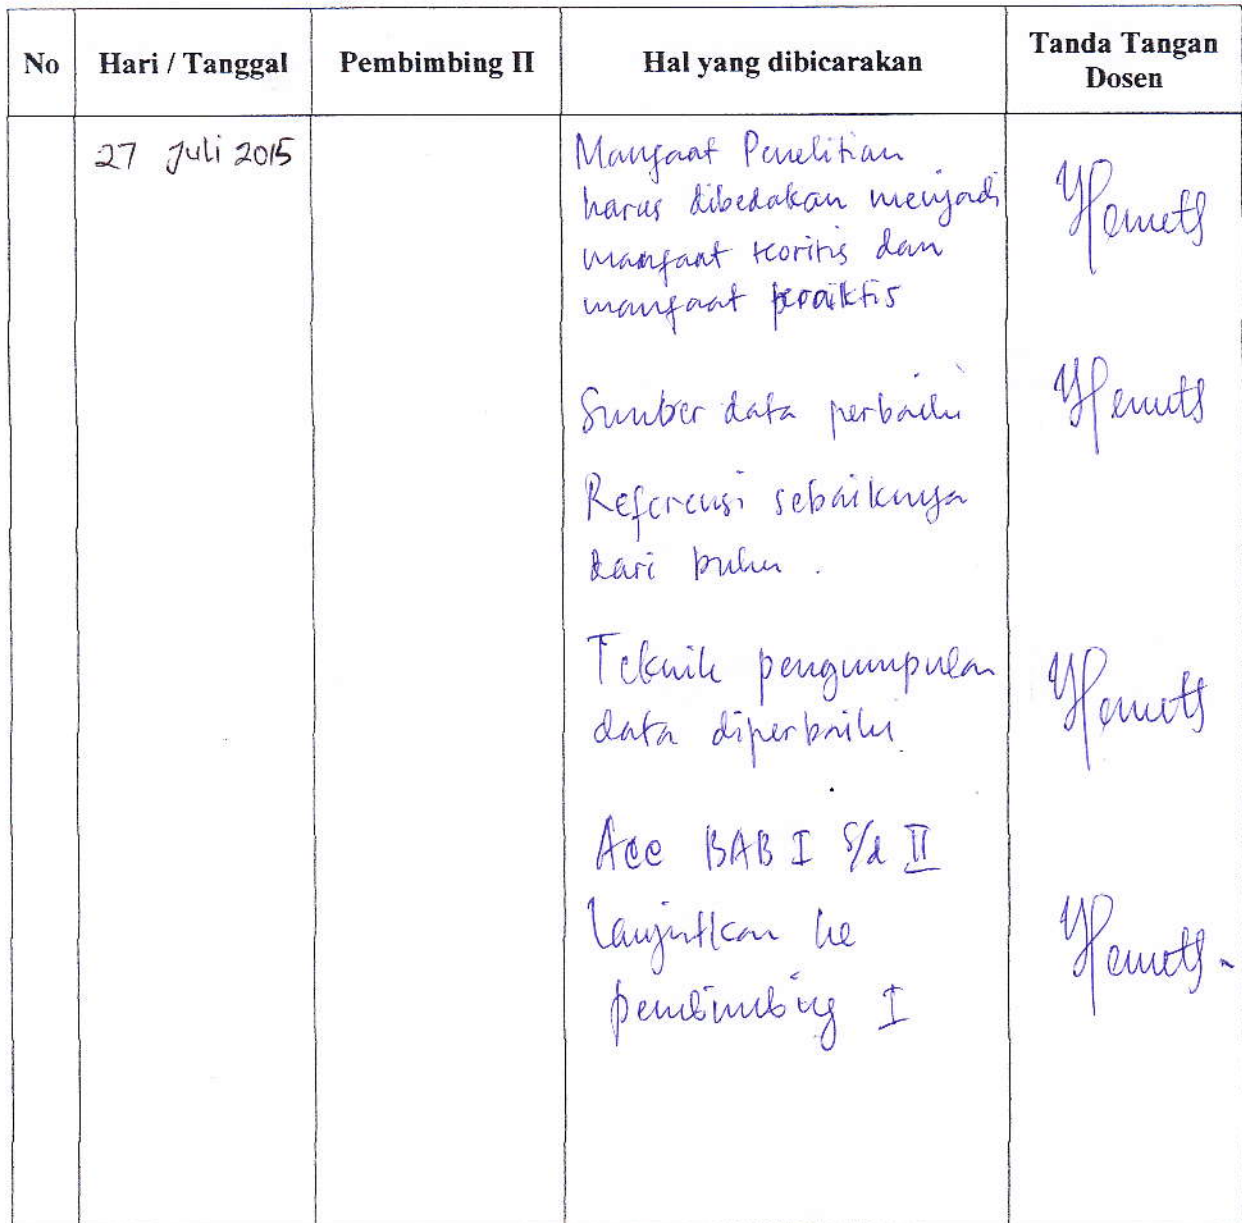 No
Hari / Tanggal
Pembimbing II
Hal yang dibicarakan
Tanda Tangan
Dosen
27 Juli 2015
Manfaat Penelitian
harus dibedakan menjadi
manfaat teoritis dan
manfaat praktis
Sumber data perbaiki
Referensi sebaiknya
dari buku.
Teknik pengumpulan
data diperbaiki
Acc BAB I S/d II
Lanjutkan ke
pembimbing I